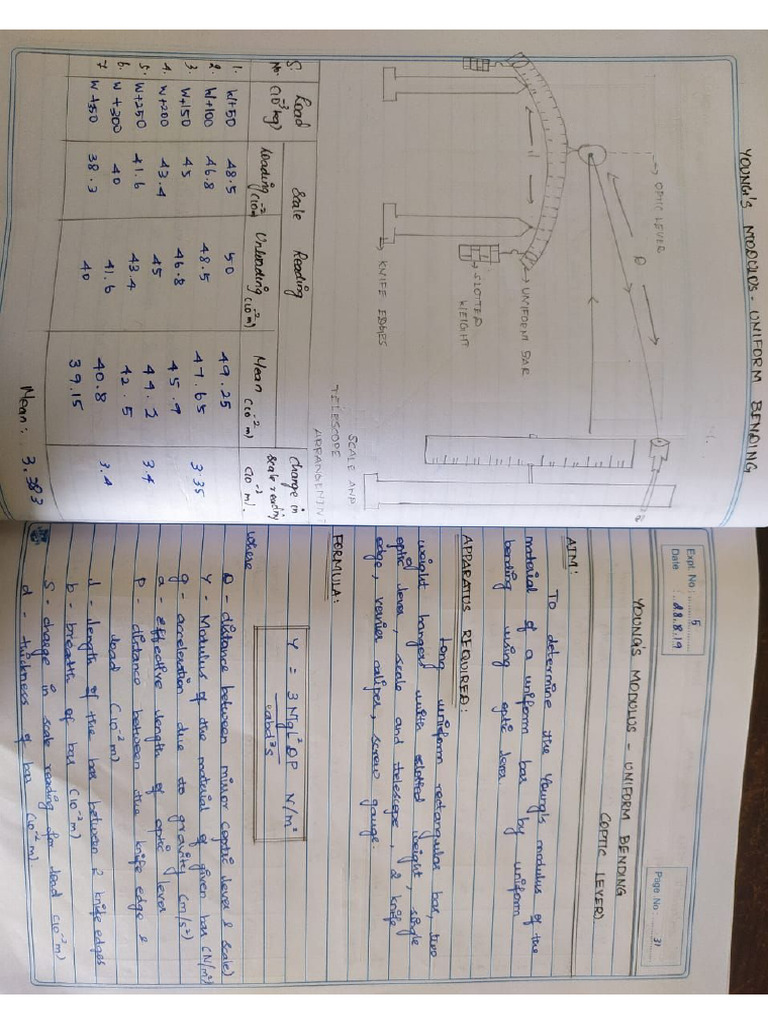 YOUNG'S MODULUS - UNIFORM BENDING
→ OPTIC LEVER
D
l
→ UNIFORM BAR
→ SLOTTED
WEIGHT
→ KNIFE EDGES
SCALE AND
TELESCOPE
ARRANGEMENT
S. No. Load (10⁻³kg) Scale Reading Change in scale reading (10⁻² m).
Loading (10⁻²m) Unloading (10⁻² m) Mean (10⁻² m)
1. W+50 48.5 50 49.25
2. W+100 46.8 48.5 47.65 3.35
3. W+150 45 46.8 45.9
4. W+200 43.4 45 44.2 3.4
5. W+250 41.6 43.4 42.5
6. W+300 40 41.6 40.8 3.4
7 W+350 38.3 40 39.15
Mean: 3.383
Expt. No : 5
Date : 28.8.19
Page No. 31
YOUNG'S MODULUS - UNIFORM BENDING
(OPTIC LEVER)
AIM:
To determine the Young's modulus of the
material of a uniform bar by uniform
bending using optic lever
APPARATUS REQUIRED:
Long uniform rectangular bar, two
weight hangers with slotted weight, single
optic lever, scale and telescope, 2 knife
edge, vernier caliper, screw gauge.
FORMULA:
Y = 3Mgl²DP / 2abd³s N/m²
where
D - distance between mirror (optic lever & scale)
Y - Modulus of the material of given bar (N/m²)
g - acceleration due to gravity (m/s²)
a - effective length of optic lever
P - distance between the knife edge &
load (10⁻² m)
l - length of the bar between 2 knife edges
b - breadth of bar (10⁻² m)
S - change in scale reading for load (10⁻² m)
d - thickness of bar (10⁻² m)